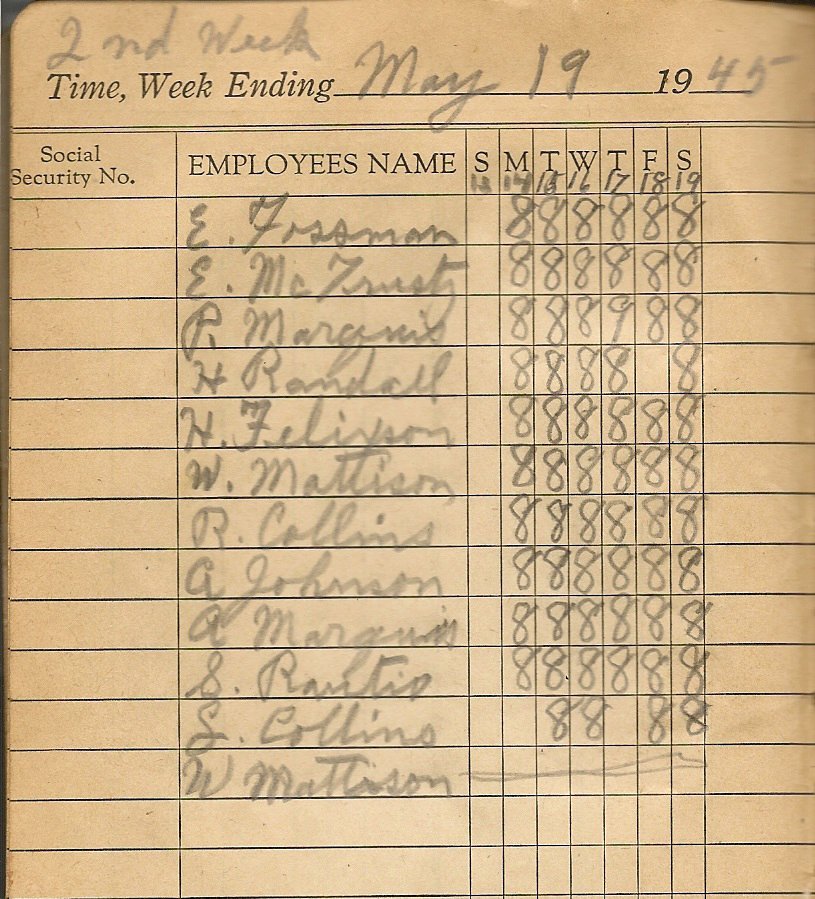 2nd Week
Time, Week Ending May 19 1945
Social Security No. EMPLOYEES NAME S M T W T F S
13 14 15 16 17 18 19
E. Fossman 8 8 8 8 8 8
E. McTrusty 8 8 8 8 8 8
R. Marquis 8 8 8 9 8 8
H Randall 8 8 8 8 8
H. Felixson 8 8 8 8 8 8
W. Mattison 8 8 8 8 8 8
R. Collins 8 8 8 8 8 8
A Johnson 8 8 8 8 8 8
A Marquis 8 8 8 8 8 8
S. Rautio 8 8 8 8 8 8
L. Collins 8 8 8 8
W Mattison